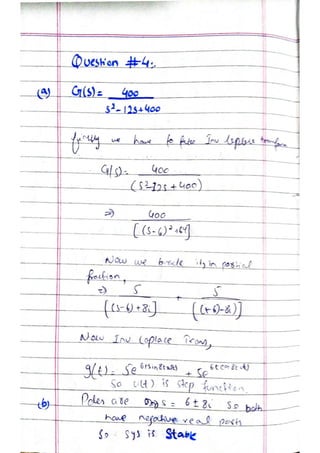 Question #4:.
(a) G(s) = 400
s² - 12s + 400
firstly we have to take Inv laplace transform
G(s) = 400
(s² - 12s + 400)
⇒ 400
[(s-6)² + 64]
Now we break it in partial
fraction,
⇒ 5 + 5
[(s-6) + 8i] [(s-6) - 8i]
Now Inv laplace Trans,
g(t) = 5e + 5e
So u(t) is step function.
(b) Poles are s = 6 ± 8i So both
have negative real parts
So sys is Stable